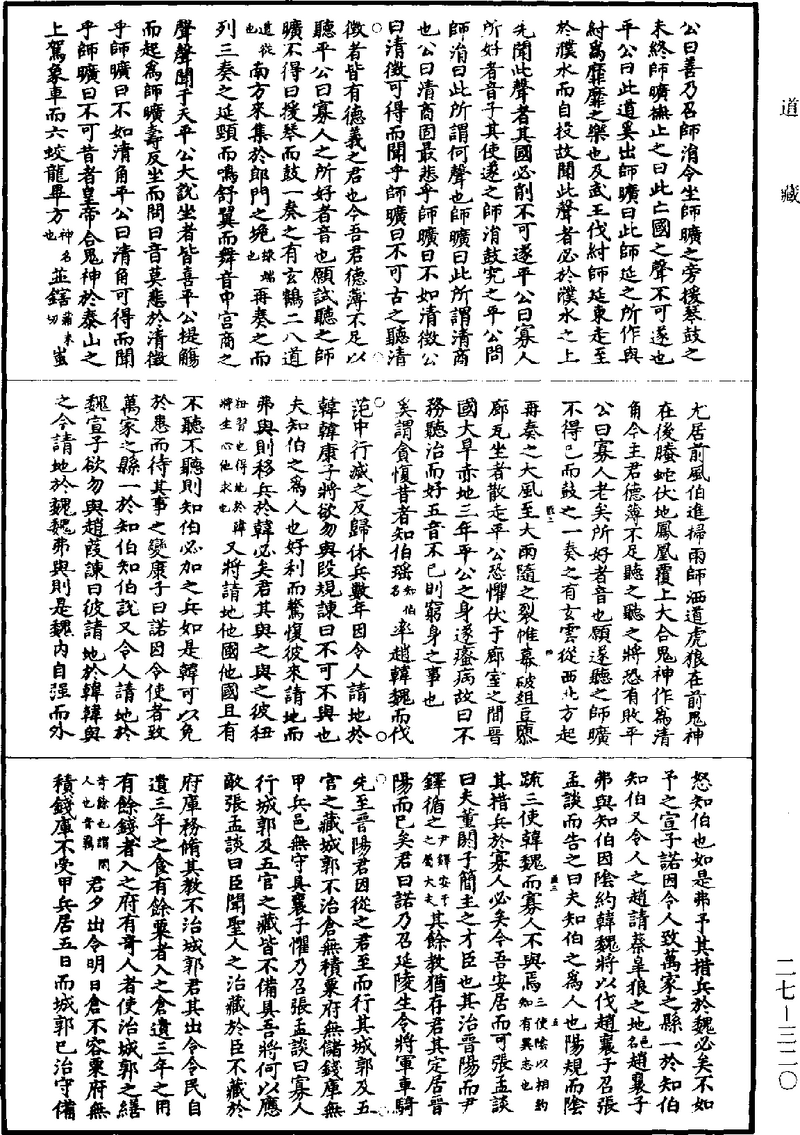 道藏
公曰善乃召師涓令坐師曠之旁援琴鼓之
未終師曠撫止之曰此亡國之聲不可遂也
平公曰此道奚出師曠曰此師延之所作與
紂爲靡靡之樂也及武王伐紂師延東走至
於濮水而自投故聞此聲者必於濮水之上
先聞此聲者其國必削不可遂平公曰寡人
所好者音子其使遂之師涓鼓究之平公問
師涓曰此所謂何聲也師曠曰此所謂清商
也公曰清商固最悲乎師曠曰不如清徵公
曰清徵可得而聞乎師曠曰不可古之聽清
徵者皆有德義之君也今吾君德薄不足以
聽平公曰寡人之所好者音也願試聽之師
曠不得曰援琴而鼓一奏之有玄鶴二八道
道從也南方來集於郎門之垝棟端也再奏之而
列三奏之延頸而鳴舒翼而舞音中宮商之
聲聲聞于天平公大說坐者皆喜平公提觴
而起爲師曠壽反坐而問曰音莫悲於清徵
乎師曠曰不如清角平公曰清角可得而聞
乎師曠曰不可昔者皇帝合鬼神於泰山之
上駕象車而六蛟龍畢方神名也並鎋蒲末切蚩
尤居前風伯進掃雨師洒道虎狼在前鬼神
在後螣蛇伏地鳳凰覆上大合鬼神作爲清
角今主君德薄不足聽之聽之將恐有敗平
公曰寡人老矣所好者音也願遂聽之師曠
不得已而鼓之一奏之有玄雲從西北方起
再奏之大風至大雨隨之裂帷幕破俎豆隳
廊瓦坐者散走平公恐懼伏于廊室之間晉
國大旱赤地三年平公之身遂癃病故曰不
務聽治而好五音不已則窮身之事也
奚謂貪愎昔者知伯瑤知伯名率趙韓魏而伐
范中行滅之反歸休兵數年因令人請地於
韓韓康子將欲勿與段規諫曰不可不與也
夫知伯之爲人也好利而驁愎彼來請地而
弗與則移兵於韓必矣君其與之與之彼狃
狃習也得地於韓將生心他求也又將請地他國他國且有
不聽不聽則知伯必加之兵如是韓可以免
於患而待其事之變康子曰諾因令使者致
萬家之縣一於知伯知伯說又令人請地於
魏宣子欲勿與趙葭諫曰彼請地於韓韓與
之今請地於魏魏弗與則是魏內自强而外
怒知伯也如是弗予其措兵於魏必矣不如
予之宣子諾因令人致萬家之縣一於知伯
知伯又令人之趙請蔡皐狼之地邑名趙襄子
弗與知伯因陰約韓魏將以伐趙襄子召張
孟談而告之曰夫知伯之爲人也陽規而陰
疏三使韓魏而寡人不與焉三使陰以相約知有異志也
其措兵於寡人必矣今吾安居而可張孟談
曰夫董閼于簡主之才臣也其治晉陽而尹
鐸循之尹鐸安于之屬大夫其餘教猶存君其定居晉
陽而已矣君曰諾乃召延陵生令將軍車騎
先至晉陽君因從之君至而行其城郭及五
官之藏城郭不治倉無積粟府無儲錢庫無
甲兵邑無守具襄子懼乃召張孟談曰寡人
行城郭及五官之藏皆不備具吾將何以應
敵張孟談曰臣聞聖人之治藏於臣不藏於
府庫務脩其教不治城郭君其出令令民自
遺三年之食有餘粟者入之倉遺三年之用
有餘錢者入之府有奇人者使治城郭之繕
奇餘也謂閑人也音羈君夕出令明日倉不容粟府無
積錢庫不受甲兵居五日而城郭已治守備
二七—三二〇